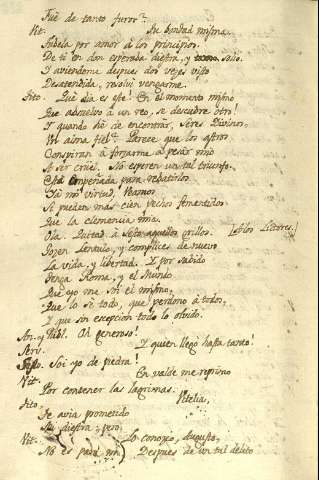 Fuè de tanto furor?
Vit. Su bondad misma.
Amèla por amor à los principios.
De ti un don esperada diestra, y
Y aviendome despues dos vezes visto
Desatendida, resolvì vengarme.
Tito. Què dia es este! En el momento mismo
Que absuelvo à un reo, se descubre otro!
Y quando hè de encontrar, Sacros Divinos,
Un alma fiel? Parece que los astros
Conspiran à forzarme à pesar mio
A ser cruel. No esperen un tal triunfo.
Està empeñada, para rebatirlos
Yà mi virtud. Veamos
Si pueden mas cien pechos fementidos
Que la clemencia mia.
Ola. Quitad à Sexto grillos. [a los Lictores.]
Gozen Lentulo, y complices de nuevo
La vida, y libertad. Y por sabido
Tenga Roma, y el Mundo
Que yo me soi el mismo,
Que lo sè todo, que perdono à todos,
Y que sin excepcion todo lo olvido.
An. y Publ. Oh generoso!
Serv. Y quien llegò hasta tanto!
Sexto. Soi yo de piedra!
Vit. En valde me reprimo
Por contener las lagrimas.
Tito. Vitelia,
Te avia prometido
Mi diestra; pero,
Vit. Lo conozco, Augusto,
No es para mi. Despues de un tal delito